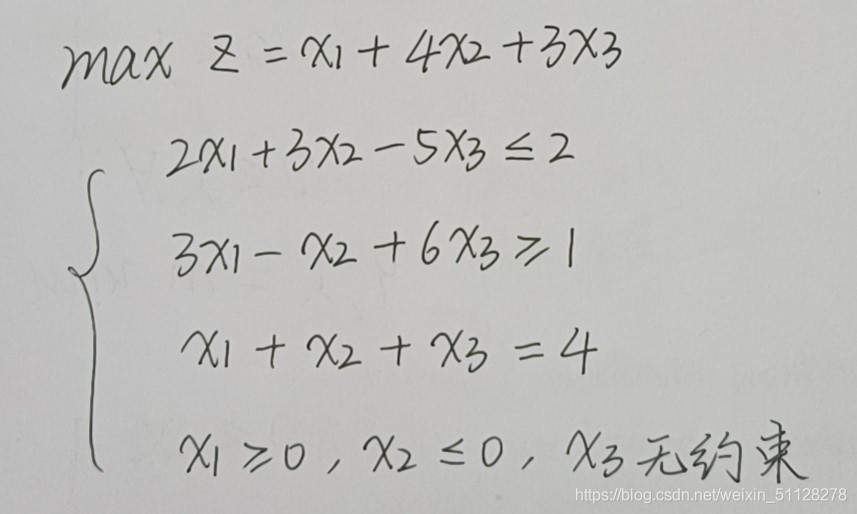 max z = x1 + 4x2 + 3x3
2x1 + 3x2 - 5x3 ≤ 2
3x1 - x2 + 6x3 ≥ 1
x1 + x2 + x3 = 4
x1 ≥ 0, x2 ≤ 0, x3 无约束
https://blog.csdn.net/weixin_51128278